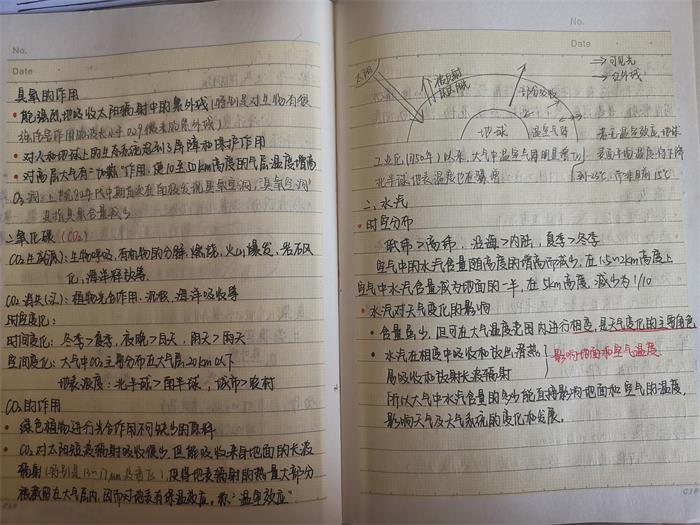 No.
Date
臭氧的作用
• 能强烈地吸收太阳辐射中的紫外线(特别是对生物有很
波长小于0.29微米的紫外线)
• 对人和地球上的生态系统起到了屏障和保护作用
• 对高层大气有"加热"作用,使10至50km高度的气层温度增高
O₃洞:上世纪80年代中期首次在南极发现臭氧空洞,"臭氧空洞"
是指臭氧含量减少
二氧化碳(CO₂)
CO₂生成(源):生物呼吸,有机物的分解,燃烧,火山爆发,岩石风
化,海洋释放等
CO₂消失(汇):植物光合作用,沉积,海洋吸收等
时空变化:
时间变化:冬季>夏季,夜晚>白天,阴天>雨天
空间变化:大气中CO₂主要分布在大气层20km以下
地表浓度:北半球>南半球,城市>农村
CO₂的作用
• 绿色植物进行光合作用不可缺少的原料
• CO₂对太阳短波辐射吸收很少,但能吸收来自地面的长波
辐射(特别是13~17μm),使得地表辐射的热量大部分
被截留在大气层内,因而对地表有保温效应,称"温室效应"
No.
Date
太阳
部分吸收
地球
温室气体
⇒可见光
→红外线
若无温室效应,地球
表面平均温度将下降
到-23℃,而非目前15℃
工业化(1750年)以来,大气中温室气体明显增加
北半球地表温度也在骤增
二、水汽
• 时空分布
低纬>高纬,沿海>内陆,夏季>冬季
空气中的水汽含量随高度的增高而减少,在1.5~2km高度上
空气中水汽含量减为地面的一半,在5km高度,减少为1/10
• 水汽对天气变化的影响
• 含量虽少,但可在大气温度范围内进行相变,是天气变化的主要角色
• 水汽在相变中吸收和放出潜热
易吸收和放射长波辐射
影响地面和空气温度
所以大气中水汽含量的多少能直接影响地面和空气的温度,
影响天气及天气系统的变化和发展。